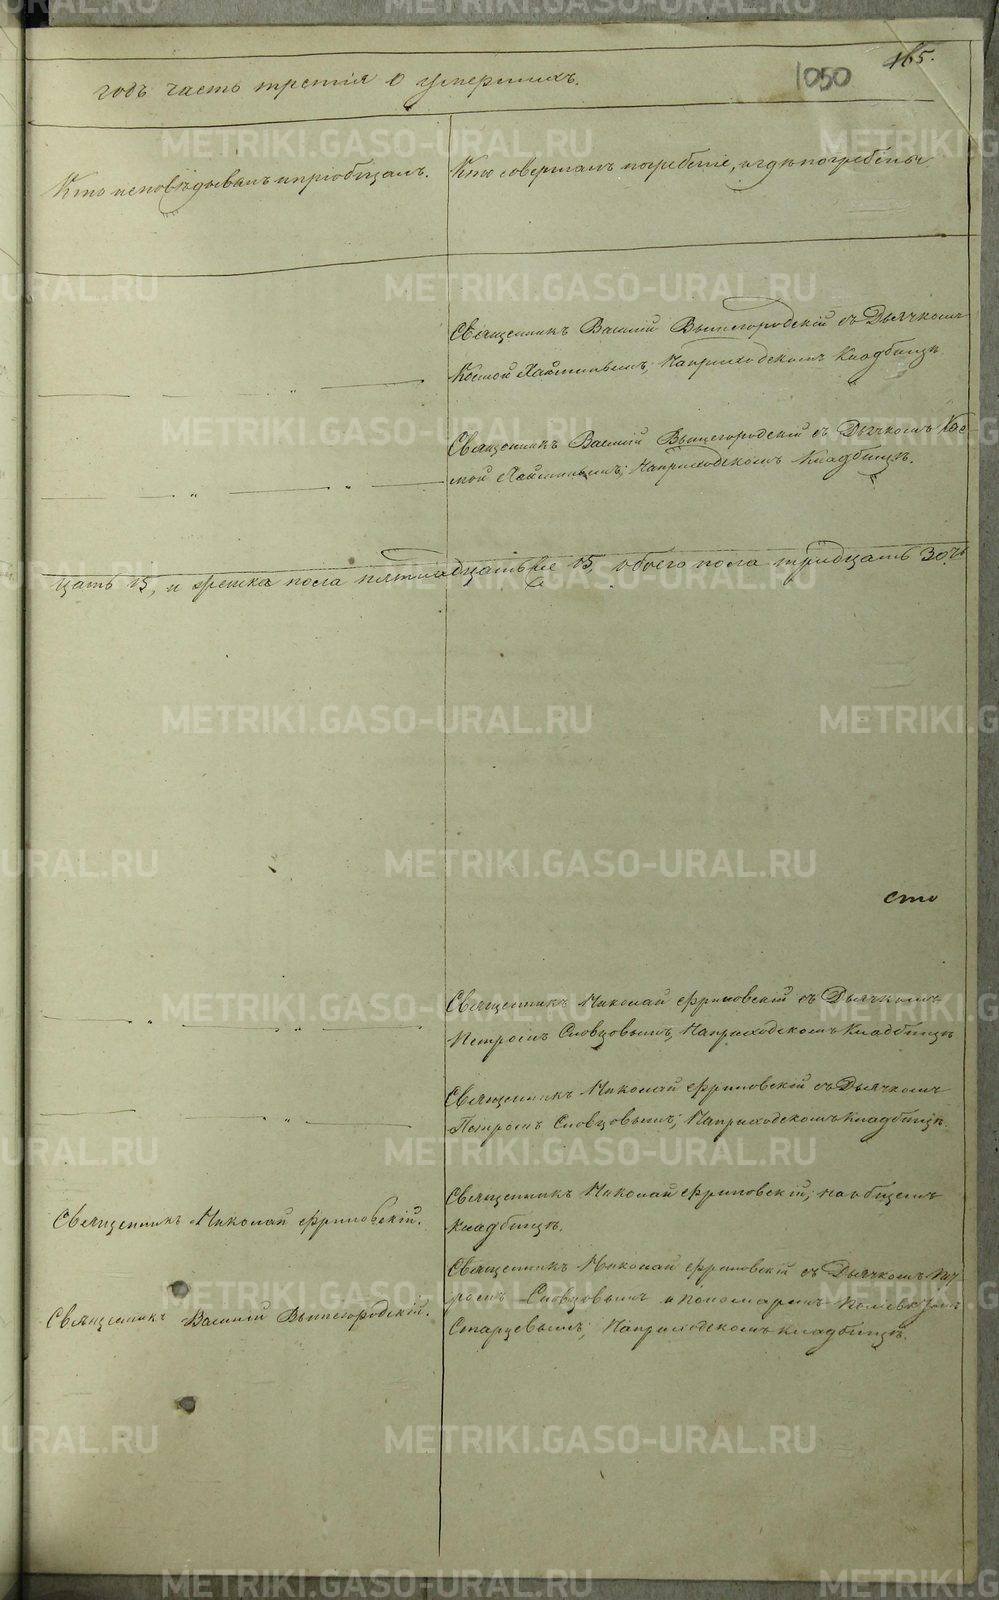 165.
1050
годъ часть третія о умершихъ.
Кто исповѣдывалъ и пріобщалъ.
Кто совершалъ погребеніе, и гдѣ погребены
Священникъ Василій Вышегородскій съ Дьячкомъ
Космой; На приходскомъ Кладбищѣ
Священникъ Василій Вышегородскій съ Дьячкомъ Кос
мой; На приходскомъ Кладбищѣ.
цать 15, и женска пола пятнадцать 15, обоего пола тридцать 30.
сто
Священникъ Николай Фриновскій съ Дьячкомъ
Петромъ Словцовымъ, На приходскомъ Кладбищѣ
Священникъ Николай Фриновскій съ Дьячкомъ
Петромъ Словцовымъ; На приходскомъ Кладбищѣ.
Священникъ Николай Фриновскій.
Священникъ Николай Фриновскій; на общемъ
кладбищѣ.
Священникъ Василій Вышегородскій.
Священникъ Николай Фриновскій съ Дьячкомъ Пет
ромъ Словцовымъ и Пономаремъ
Старцевымъ; На приходскомъ кладбищѣ.
METRIKI.GASO-URAL.RU